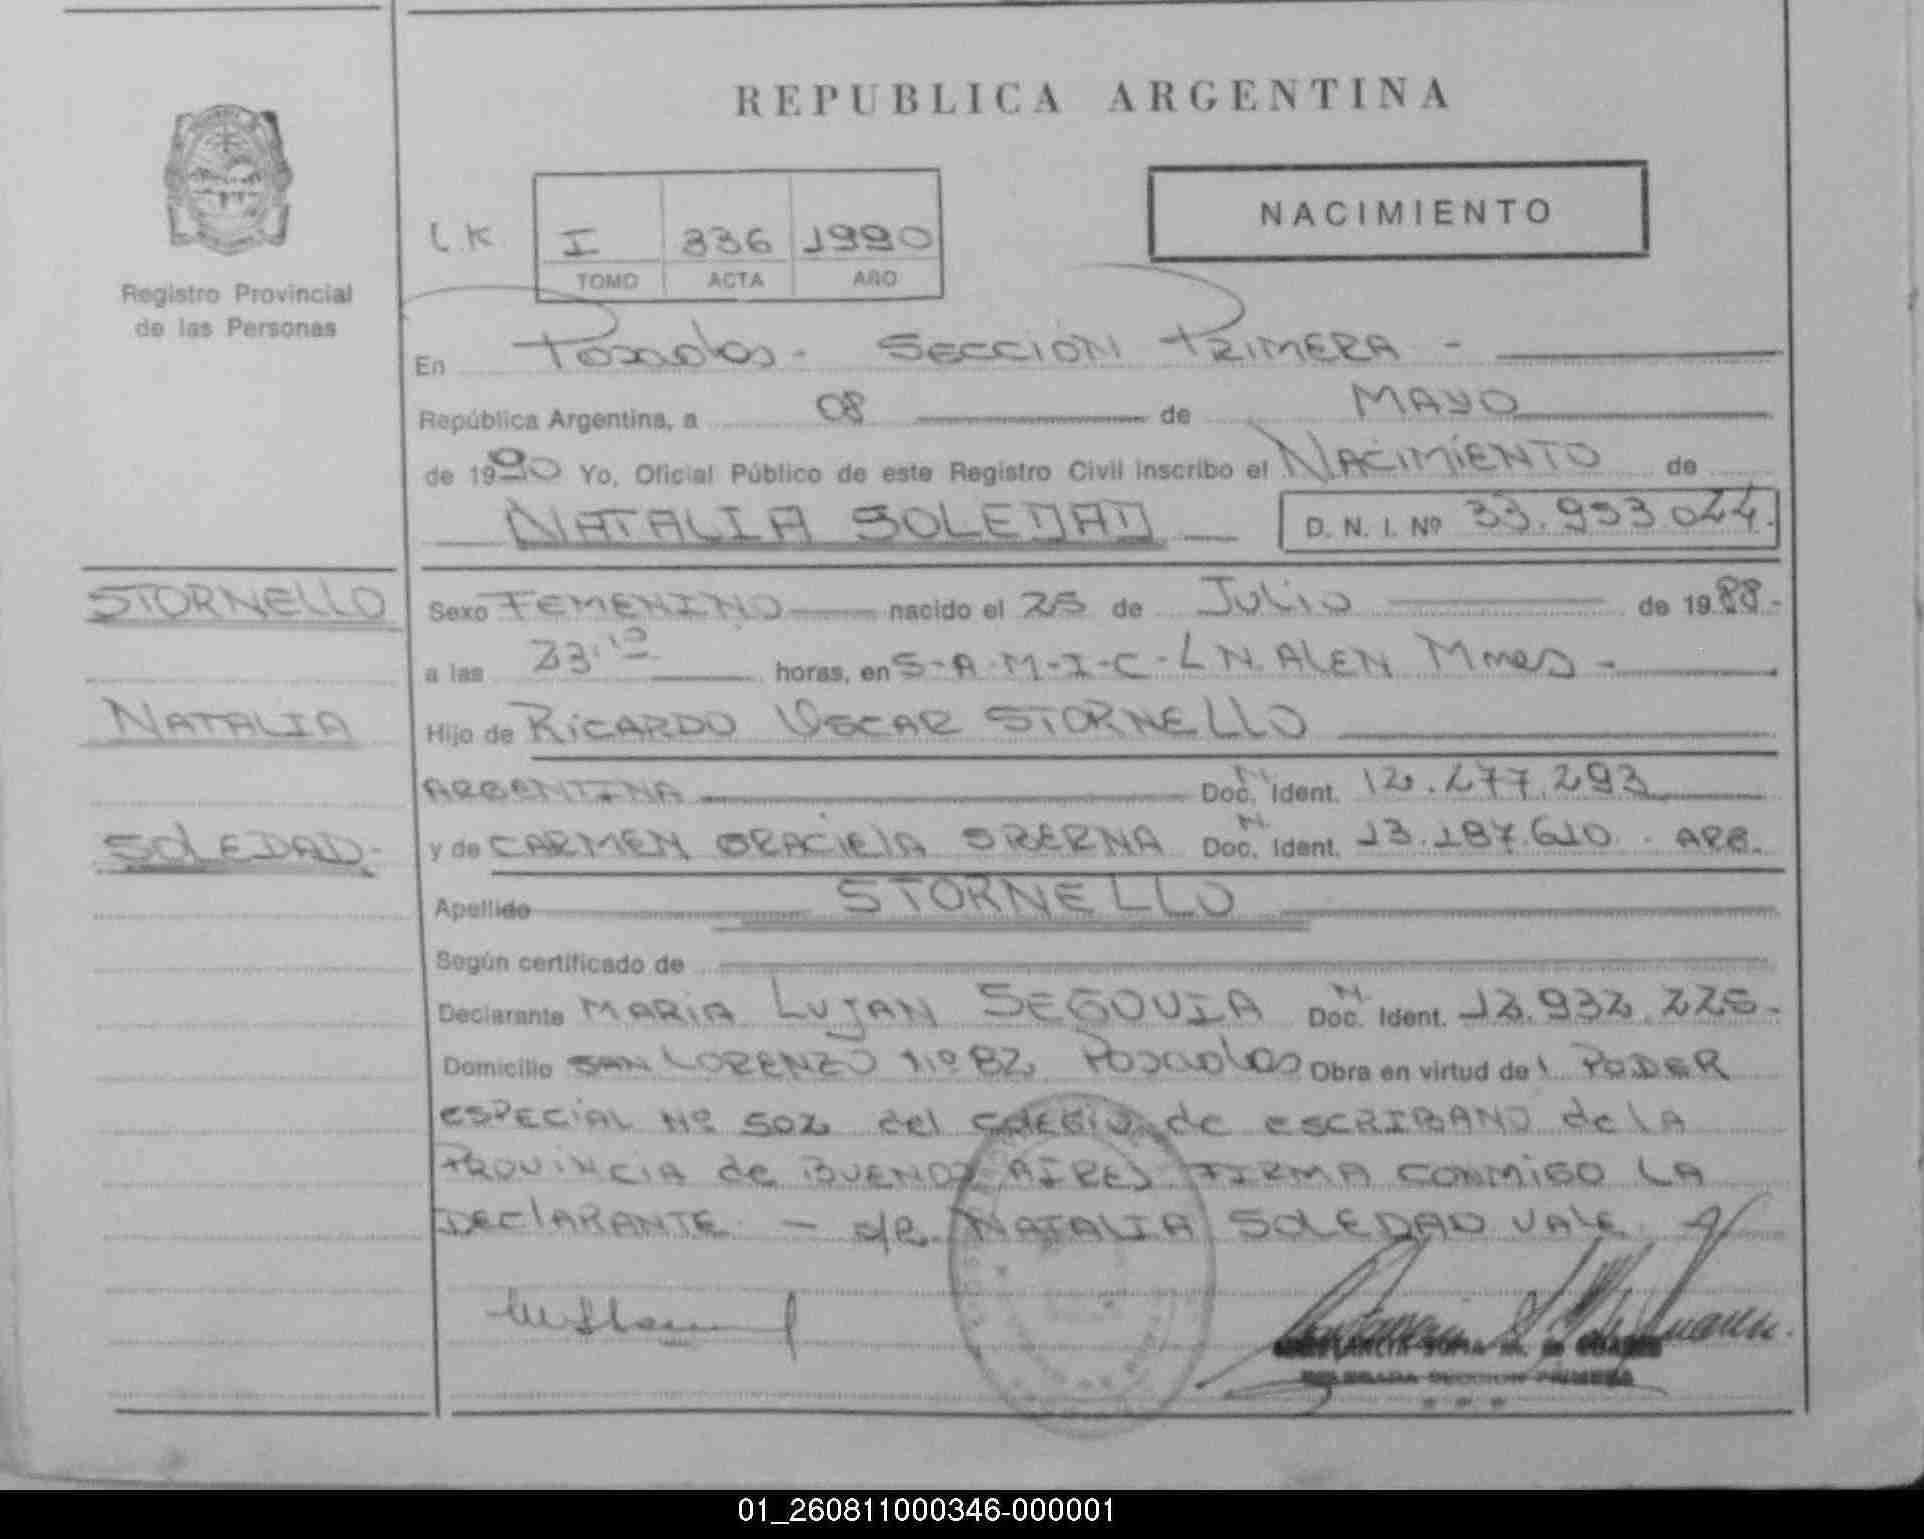 REPUBLICA ARGENTINA
NACIMIENTO
L.K I 336 1990
TOMO ACTA AÑO
Registro Provincial
de las Personas
En Posadas - SECCION PRIMERA -
República Argentina, a 08 de MAYO
de 1990 Yo, Oficial Público de este Registro Civil inscribo el NACIMIENTO de
NATALIA SOLEDAD D. N. I. Nº 33.953.044.
STORNELLO
NATALIA
SOLEDAD-
Sexo FEMENINO nacido el 25 de Julio de 1988-
a las 23.10 horas, en S-A-M-I-C-LN.ALEN Mnes -
Hijo de RiCARDO OSCAR STORNELLO
ARGENTINA Doc. Ident. 12.277.293
y de CARMEN GRACiElA Doc. Ident. 13.187.610. ARG.
Apellido STORNELLO
Según certificado de
Declarante MARIA LUJAN SEGOVIA Doc. Ident. 12.932.225-
Domicilio SAN LORENZO Nº 82 Posadas Obra en virtud del PODER
ESPECIAL Nº 502 del COLEGIO de ESCRIBANO de LA
PROVINCIA de BUENOS AIRES FIRMA CONMIGO LA
DECLARANTE - NATALIA SOLEDAD VALE
DELEGADA SECCION PRIMERA
01_260811000346-000001